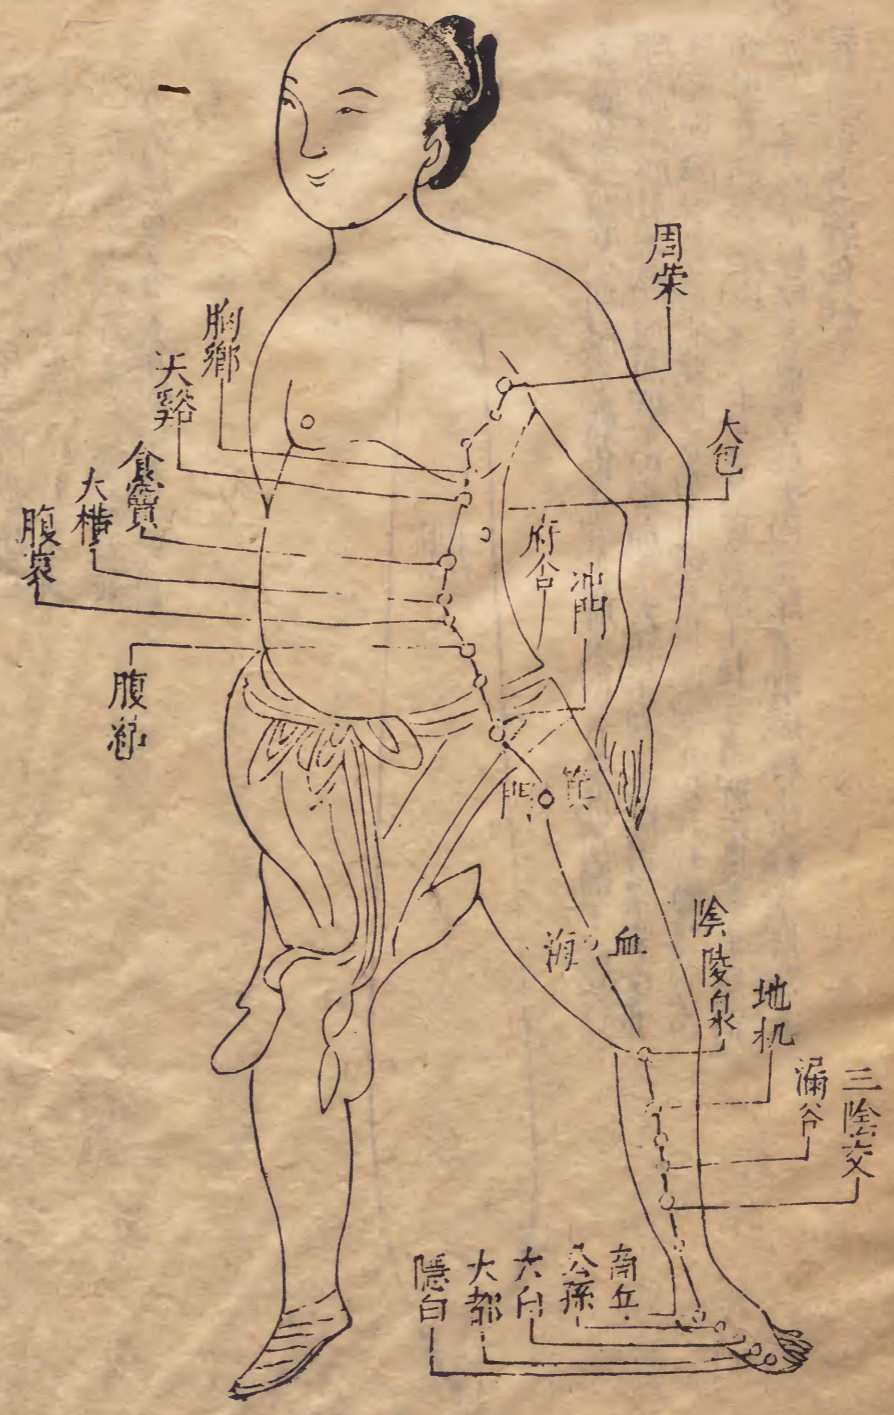 周榮
胸鄉
天谿
食竇
大橫
腹哀
大包
府舍
冲門
箕門
血海
陰陵泉
地机
漏谷
三陰交
商丘
公孫
太白
大都
隱白